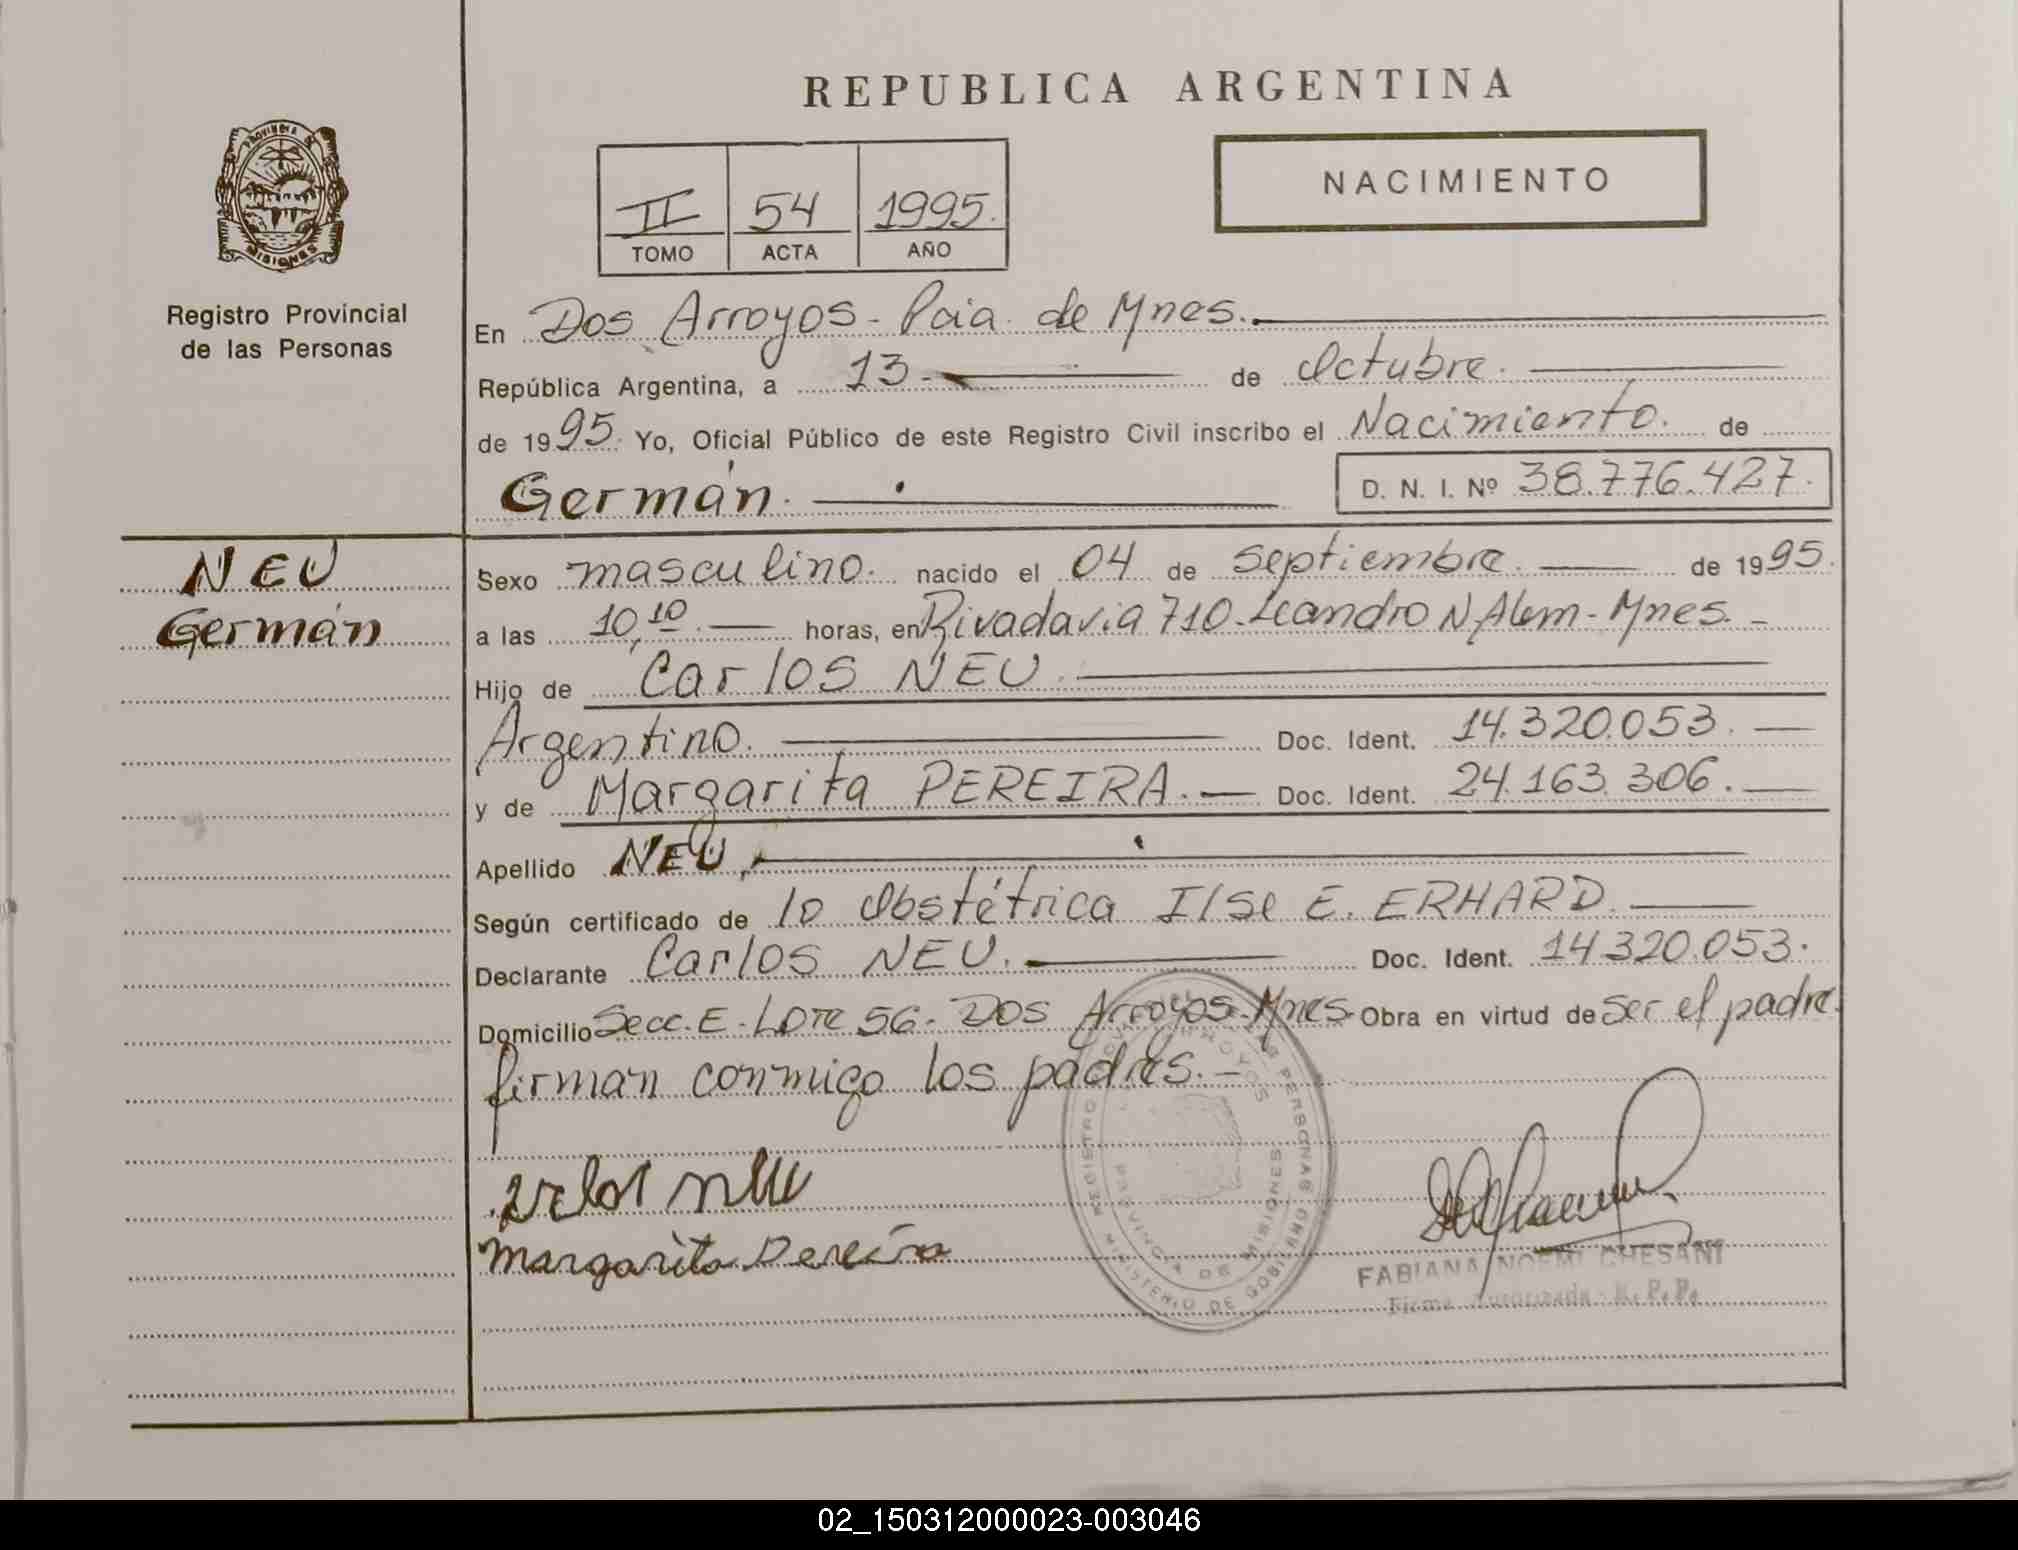 REPUBLICA ARGENTINA
PROVINCIA DE
MISIONES
Registro Provincial
de las Personas
II 54 1995.
TOMO ACTA AÑO
NACIMIENTO
En Dos Arroyos - Pcia. de Mnes.
República Argentina, a 13 de Octubre.
de 1995. Yo, Oficial Público de este Registro Civil inscribo el Nacimiento. de
Germán. D. N. I. Nº 38.776.427.
NEU
Germán
Sexo masculino. nacido el 04 de septiembre. de 1995.
a las 10,10. horas, en Rivadavia 710 - Leandro N. Alem - Mnes. -
Hijo de Carlos NEU.
Argentino. Doc. Ident. 14.320.053.
y de Margarita PEREIRA. Doc. Ident. 24.163.306.
Apellido NEU,
Según certificado de la Obstétrica Ilse E. ERHARD.
Declarante Carlos NEU. Doc. Ident. 14.320.053.
Domicilio Secc. E - Lote 56 - Dos Arroyos - Mnes. Obra en virtud de ser el padre.
firman conmigo los padres. -
Margarita Pereira
REGISTRO PROVINCIAL DE LAS PERSONAS
MINISTERIO DE GOBIERNO
DOS ARROYOS
PROVINCIA DE MISIONES
FABIANA NOEMI CHESANI
Firma Autorizada - R. P. P.
02_150312000023-003046